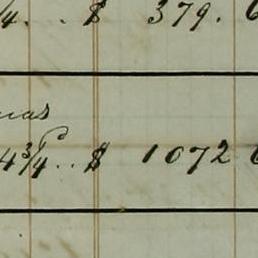 /4. .. $ 379. 6
mas
4 3/4 .. $ 1072 6